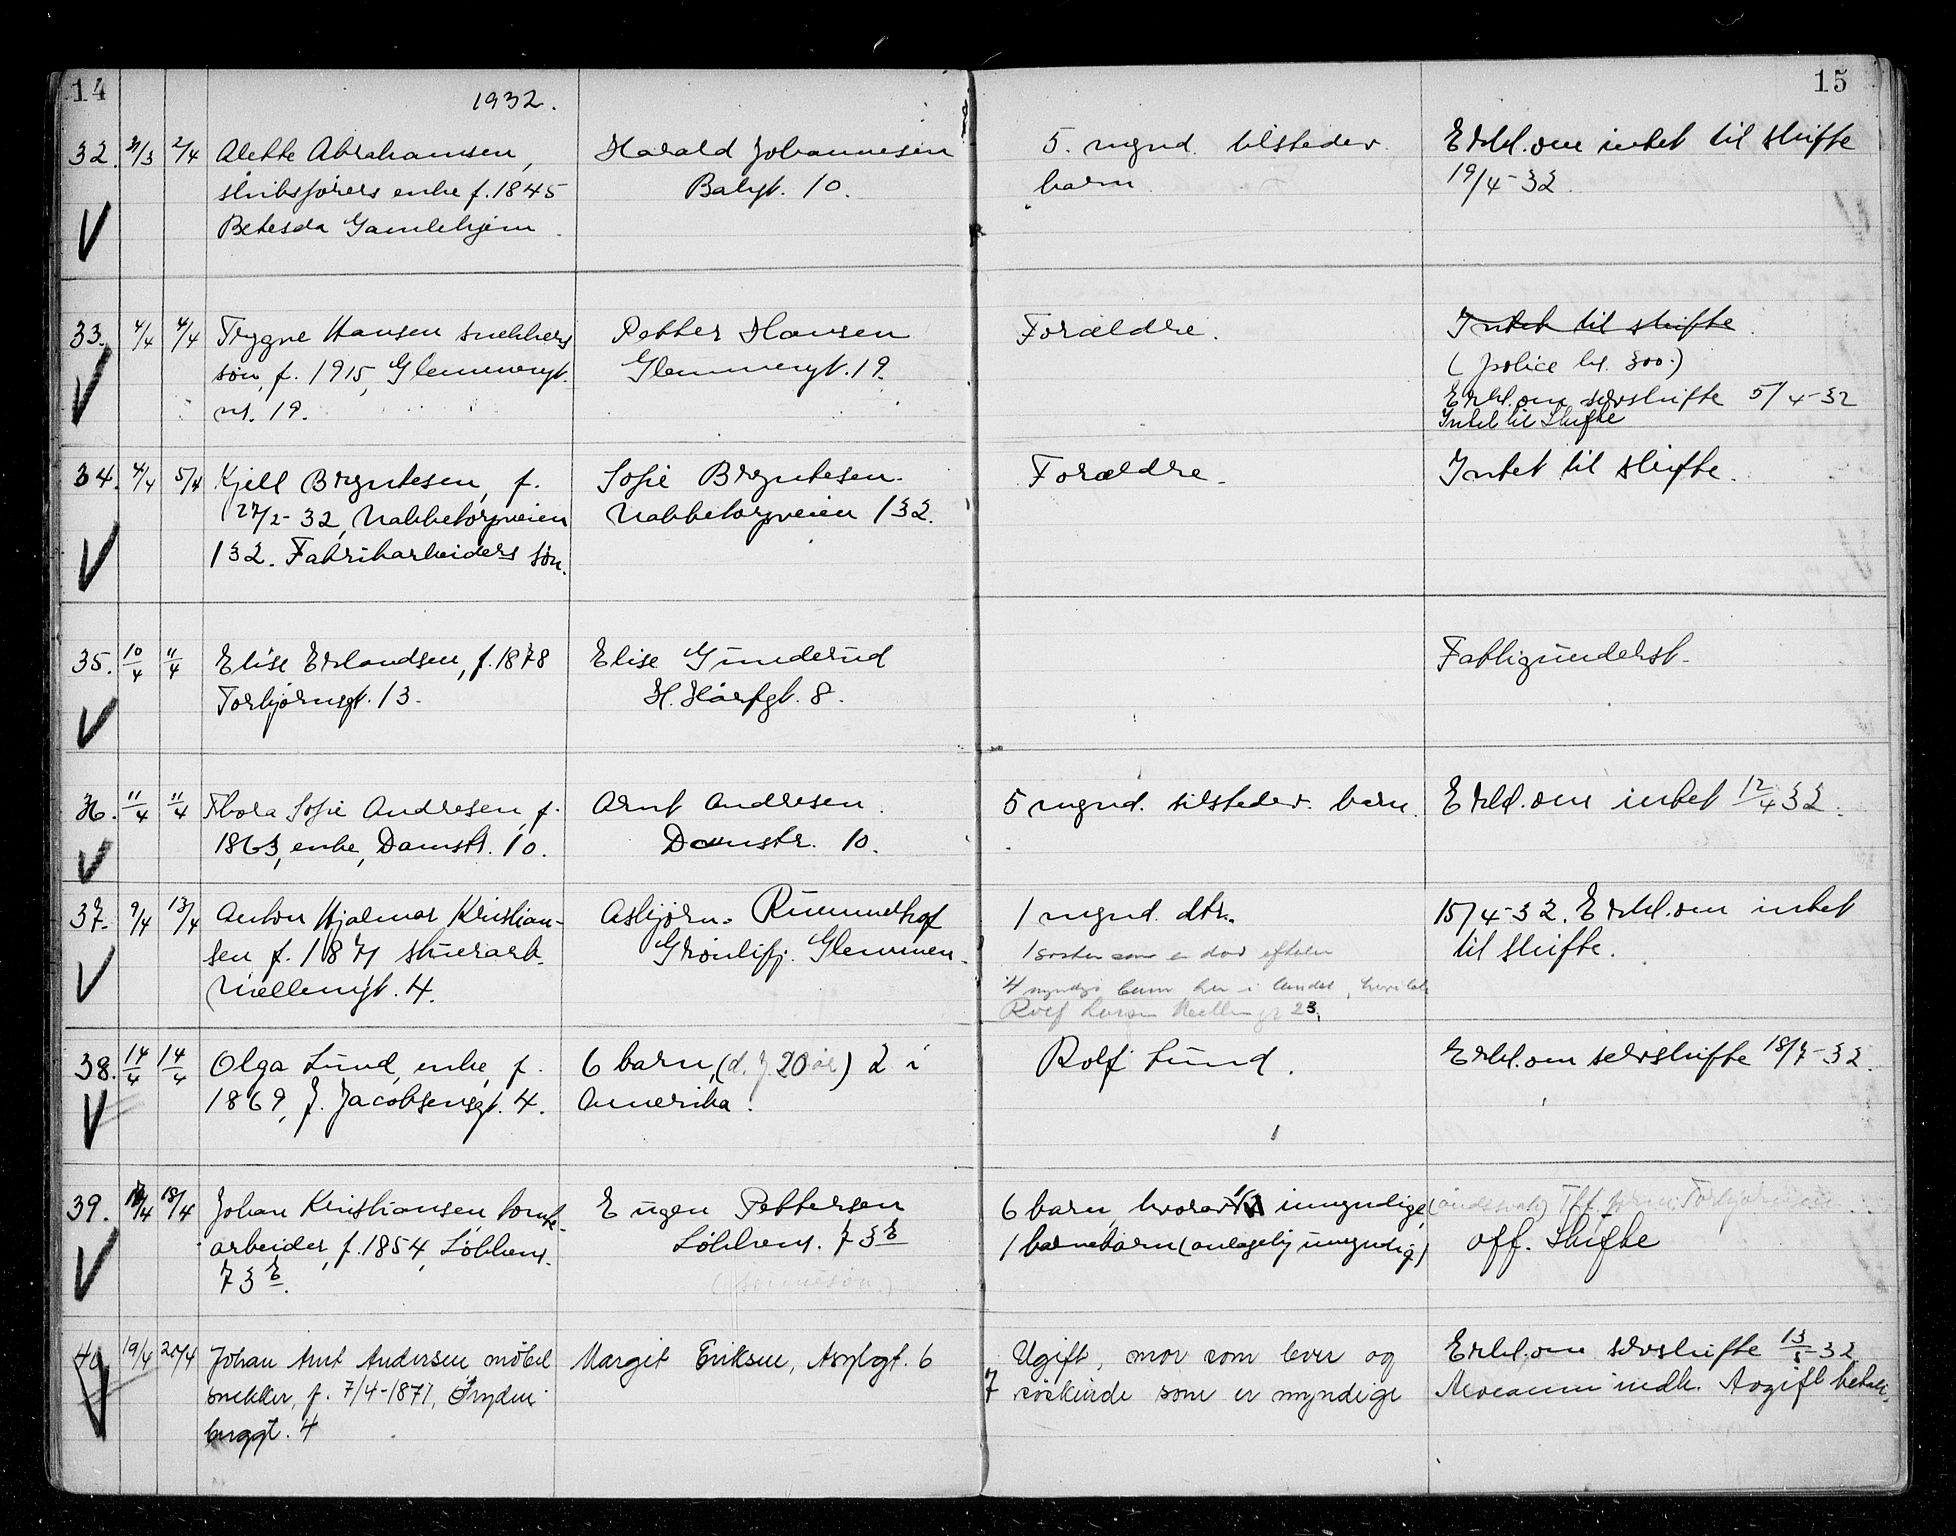 14
15
1932.
32. 31/3 2/4 Alette Abrahamsen, Harald Johannesen 5. mynd. tilsteder. Erkl. om intet til skifte
skibsførers enke f. 1845 Balgt. 10. barn. 19/4-32.
Betesda Gamlehjem.
33. 4/4 4/4 Trygve Hansen snekkers Petter Hansen Forældre. Intet til skifte.
søn, f. 1915, Glemmengt. Glemmengt. 19. (police kr. 300.)
nr. 19. Erkl. om selvskifte 5/4-32
Intet til Skifte
34. 4/4 5/4 Kjell Bryntesen, f. Sofie Bryntesen. Forældre. Intet til skifte.
27/2-32, Nabbetorpveien Nabbetorpveien 132.
132. Fabrikarbeiders søn.
35. 10/4 11/4 Elise Erlandsen, f. 1878 Elise Gunderud Fattigunderst.
Torbjørnsgt. 13. H. Hårfgt. 8.
36. 11/4 11/4 Thora Sofie Andresen, f. Arnt Andresen. 5 mynd. tilsteder. barn. Erkl. om intet 12/4 32.
1863, enke, Damstr. 10. Damstr. 10.
37. 9/4 13/4 Anton Hjalmar Kristian- Asbjørn Rummelhof 1 mynd. dtr. 15/4-32. Erkl. om intet
sen f. 1871 stuerarb. Grønlifj. Glemmen. 1 søster som er død til skifte.
Møllengt. 4. 4 myndige barn her i landet,
Rolf 23.
38. 14/4 14/4 Olga Lund, enke, f. 6 barn, (d. y. 20 år) 2 i Rolf Lund. Erkl. om selvskifte 18/7-32.
1869, J. Jacobsensgt. 4. Amerika.
39. 18/4 18/4 Johan Kristiansen tomte- Eugen Pettersen 6 barn, hvorav 1 umyndige, (åndssvak) Tlf.
arbeider, f. 1854, Løkkens. Løkkens. 73 b 1 barnebarn (antagelig umyndig) Off. Skifte
73 b. (sønnesøn)
40 19/4 20/4 Johan Arnt Andersen møbel Margit Eriksen, Asylgt. 6 Ugift, mor som lever og Erkl. om selvskifte 13/5-32
snekker, f. 7/4-1871, Fryden 7 søskende som er myndige Avgift betalt.
berggt. 4